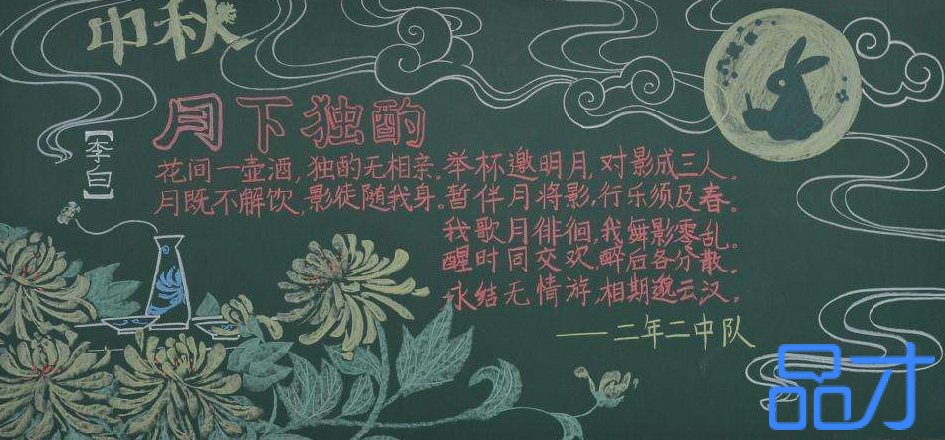 中秋
月下独酌
【李白】
花间一壶酒,独酌无相亲.举杯邀明月,对影成三人.
月既不解饮,影徒随我身.暂伴月将影,行乐须及春.
我歌月徘徊,我舞影零乱.
醒时同交欢,醉后各分散.
永结无情游,相期邈云汉.
——二年二中队
品才